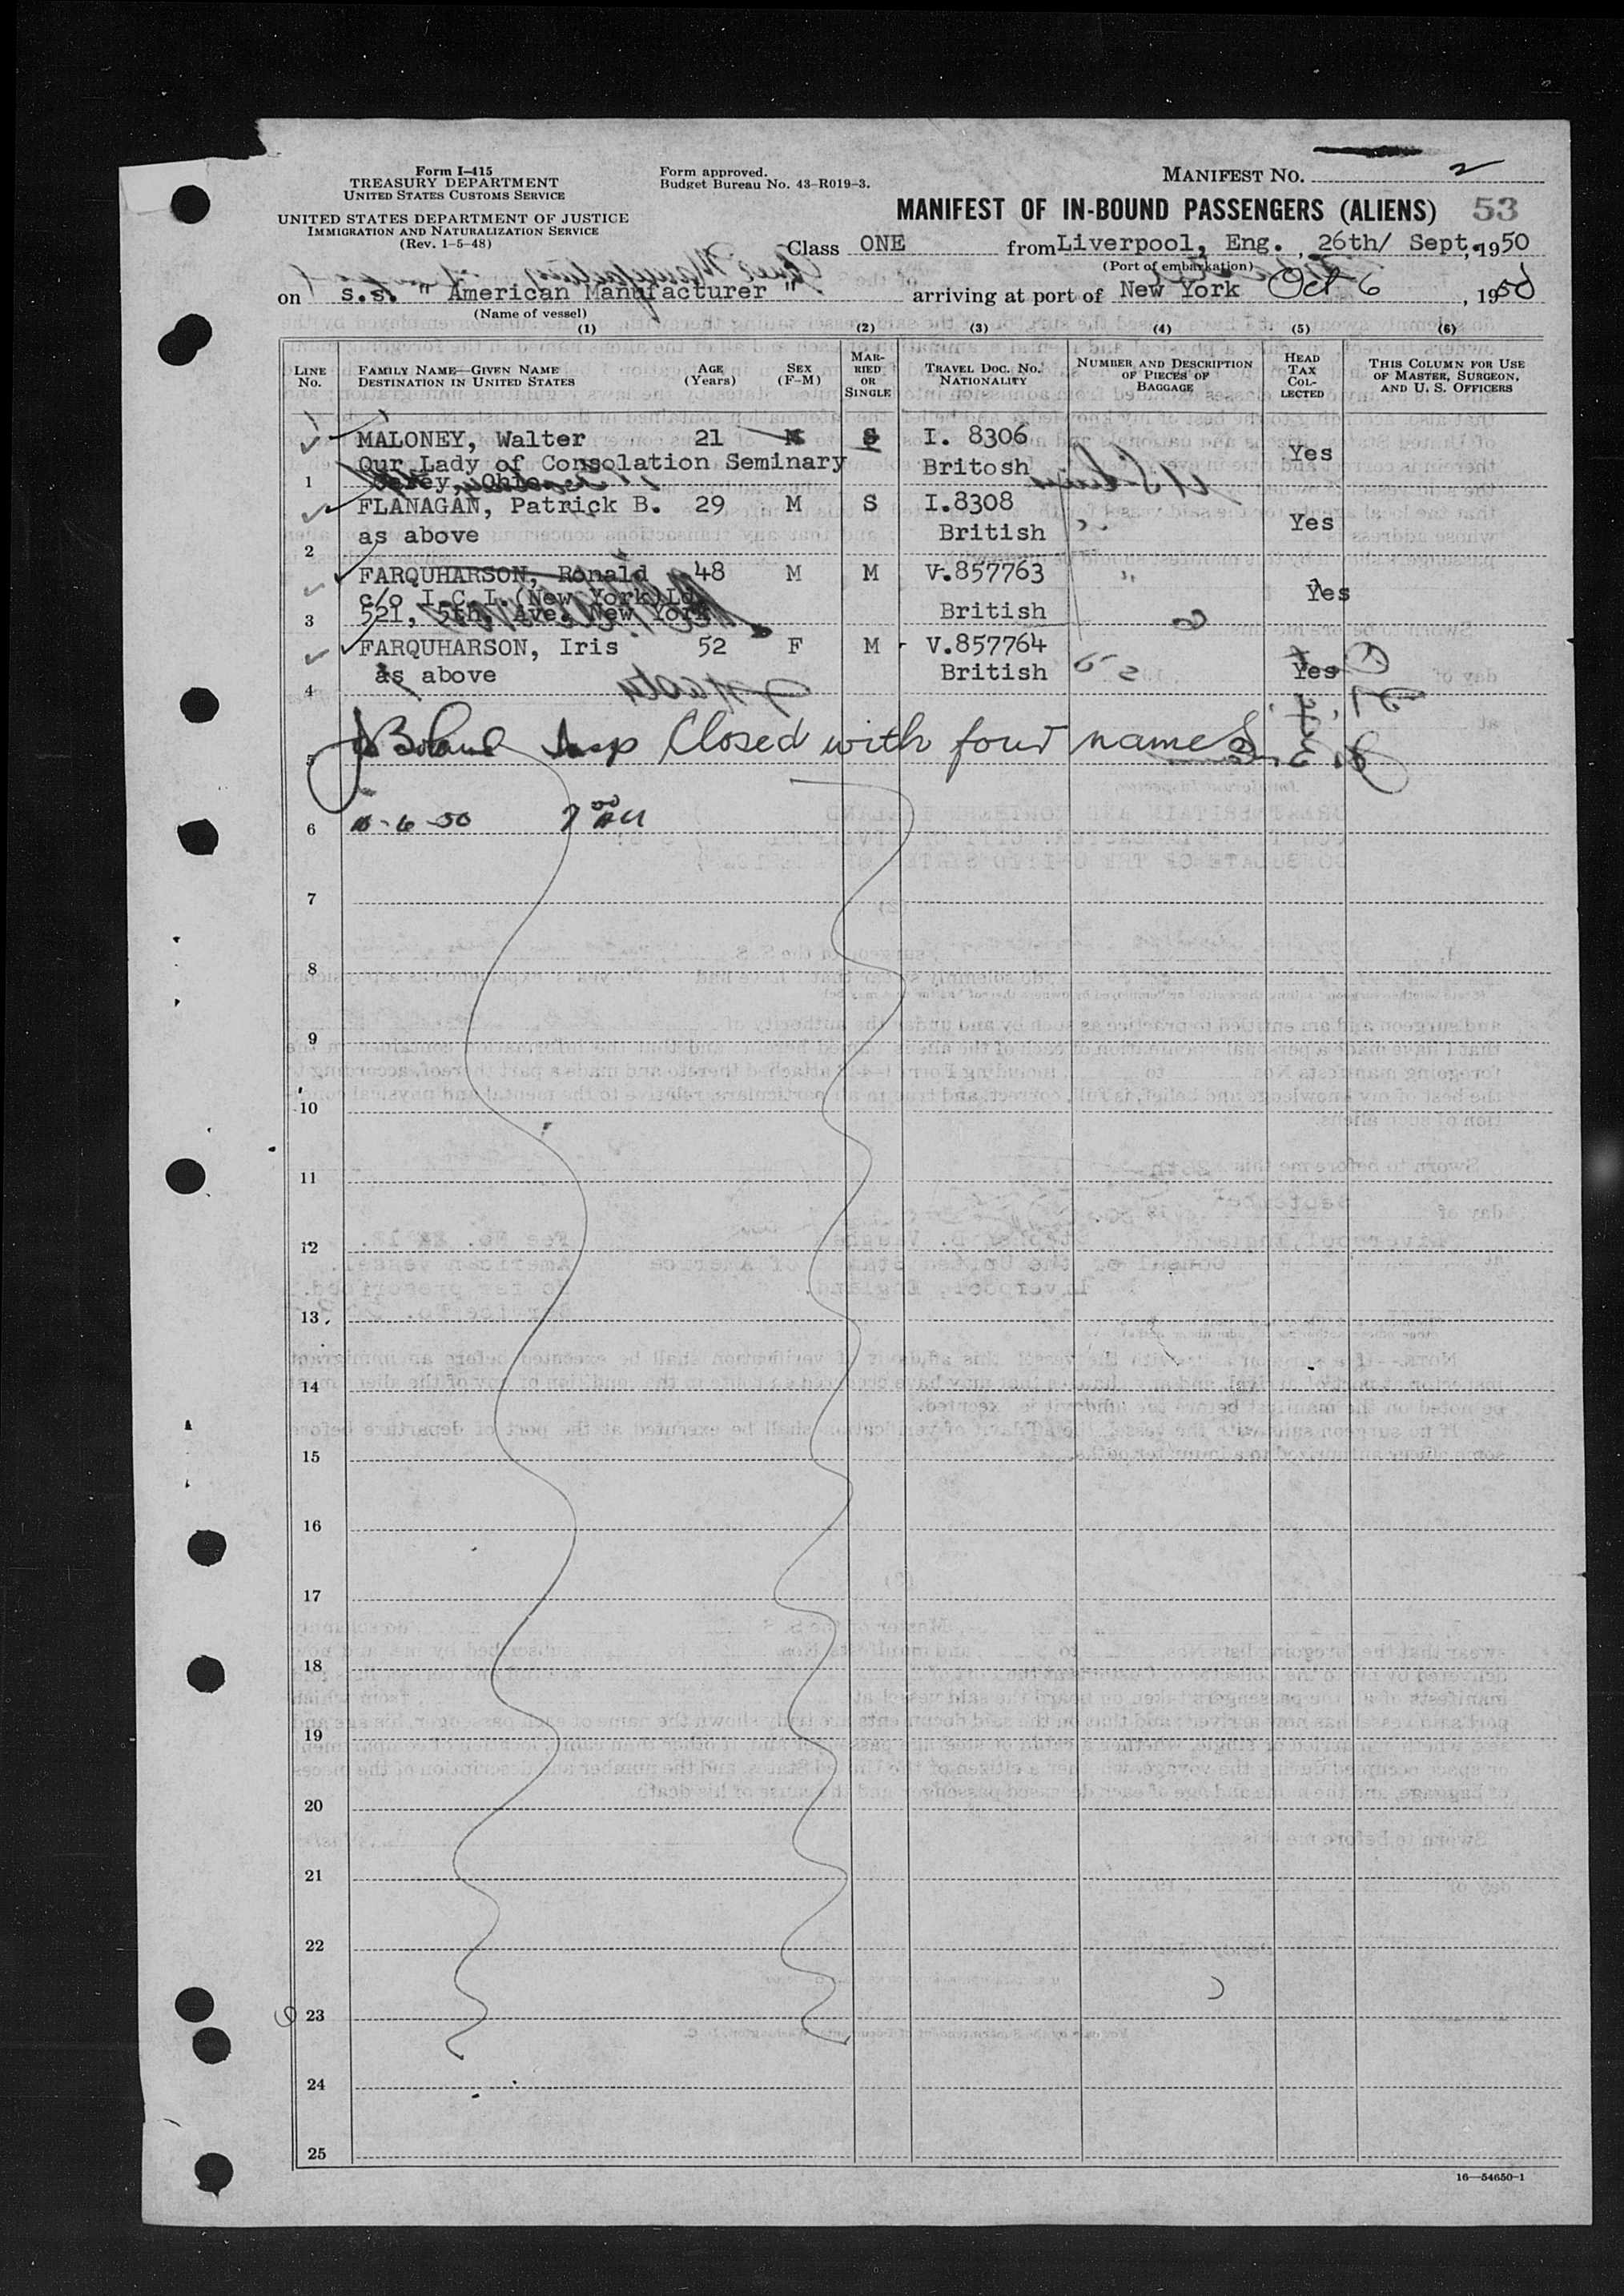 Form I-415
TREASURY DEPARTMENT
UNITED STATES CUSTOMS SERVICE
UNITED STATES DEPARTMENT OF JUSTICE
IMMIGRATION AND NATURALIZATION SERVICE
(Rev. 1-5-48)
Form approved.
Budget Bureau No. 43-R019-3.
MANIFEST NO. 2
MANIFEST OF IN-BOUND PASSENGERS (ALIENS) 53
Class ONE from Liverpool, Eng. , 26th/ Sept. , 1950
(Port of embarkation)
on s.s. " American Manufacturer " arriving at port of New York Oct 6 , 1950
(Name of vessel)
(1) (2) (3) (4) (5) (6)
LINE No. FAMILY NAME—GIVEN NAME DESTINATION IN UNITED STATES AGE (Years) SEX (F-M) MARRIED OR SINGLE TRAVEL DOC. NO. NATIONALITY NUMBER AND DESCRIPTION OF PIECES OF BAGGAGE HEAD TAX COLLECTED THIS COLUMN FOR USE OF MASTER, SURGEON, AND U. S. OFFICERS
MALONEY, Walter 21 M S I. 8306 Yes
Our Lady of Consolation Seminary Britosh
1 Carey, Ohio
FLANAGAN, Patrick B. 29 M S I.8308 Yes
as above British
2
FARQUHARSON, Ronald 48 M M V.857763 Yes
c/o I.C.I.(New York)Ld
3 521, 5th. Ave. New York British
FARQUHARSON, Iris 52 F M V.857764
as above British Yes
4
5 Boland Insp Closed with four names
6 10-6-50 7 00 AM
7
8
9
10
11
12
13
14
15
16
17
18
19
20
21
22
23
24
25
16—54650-1